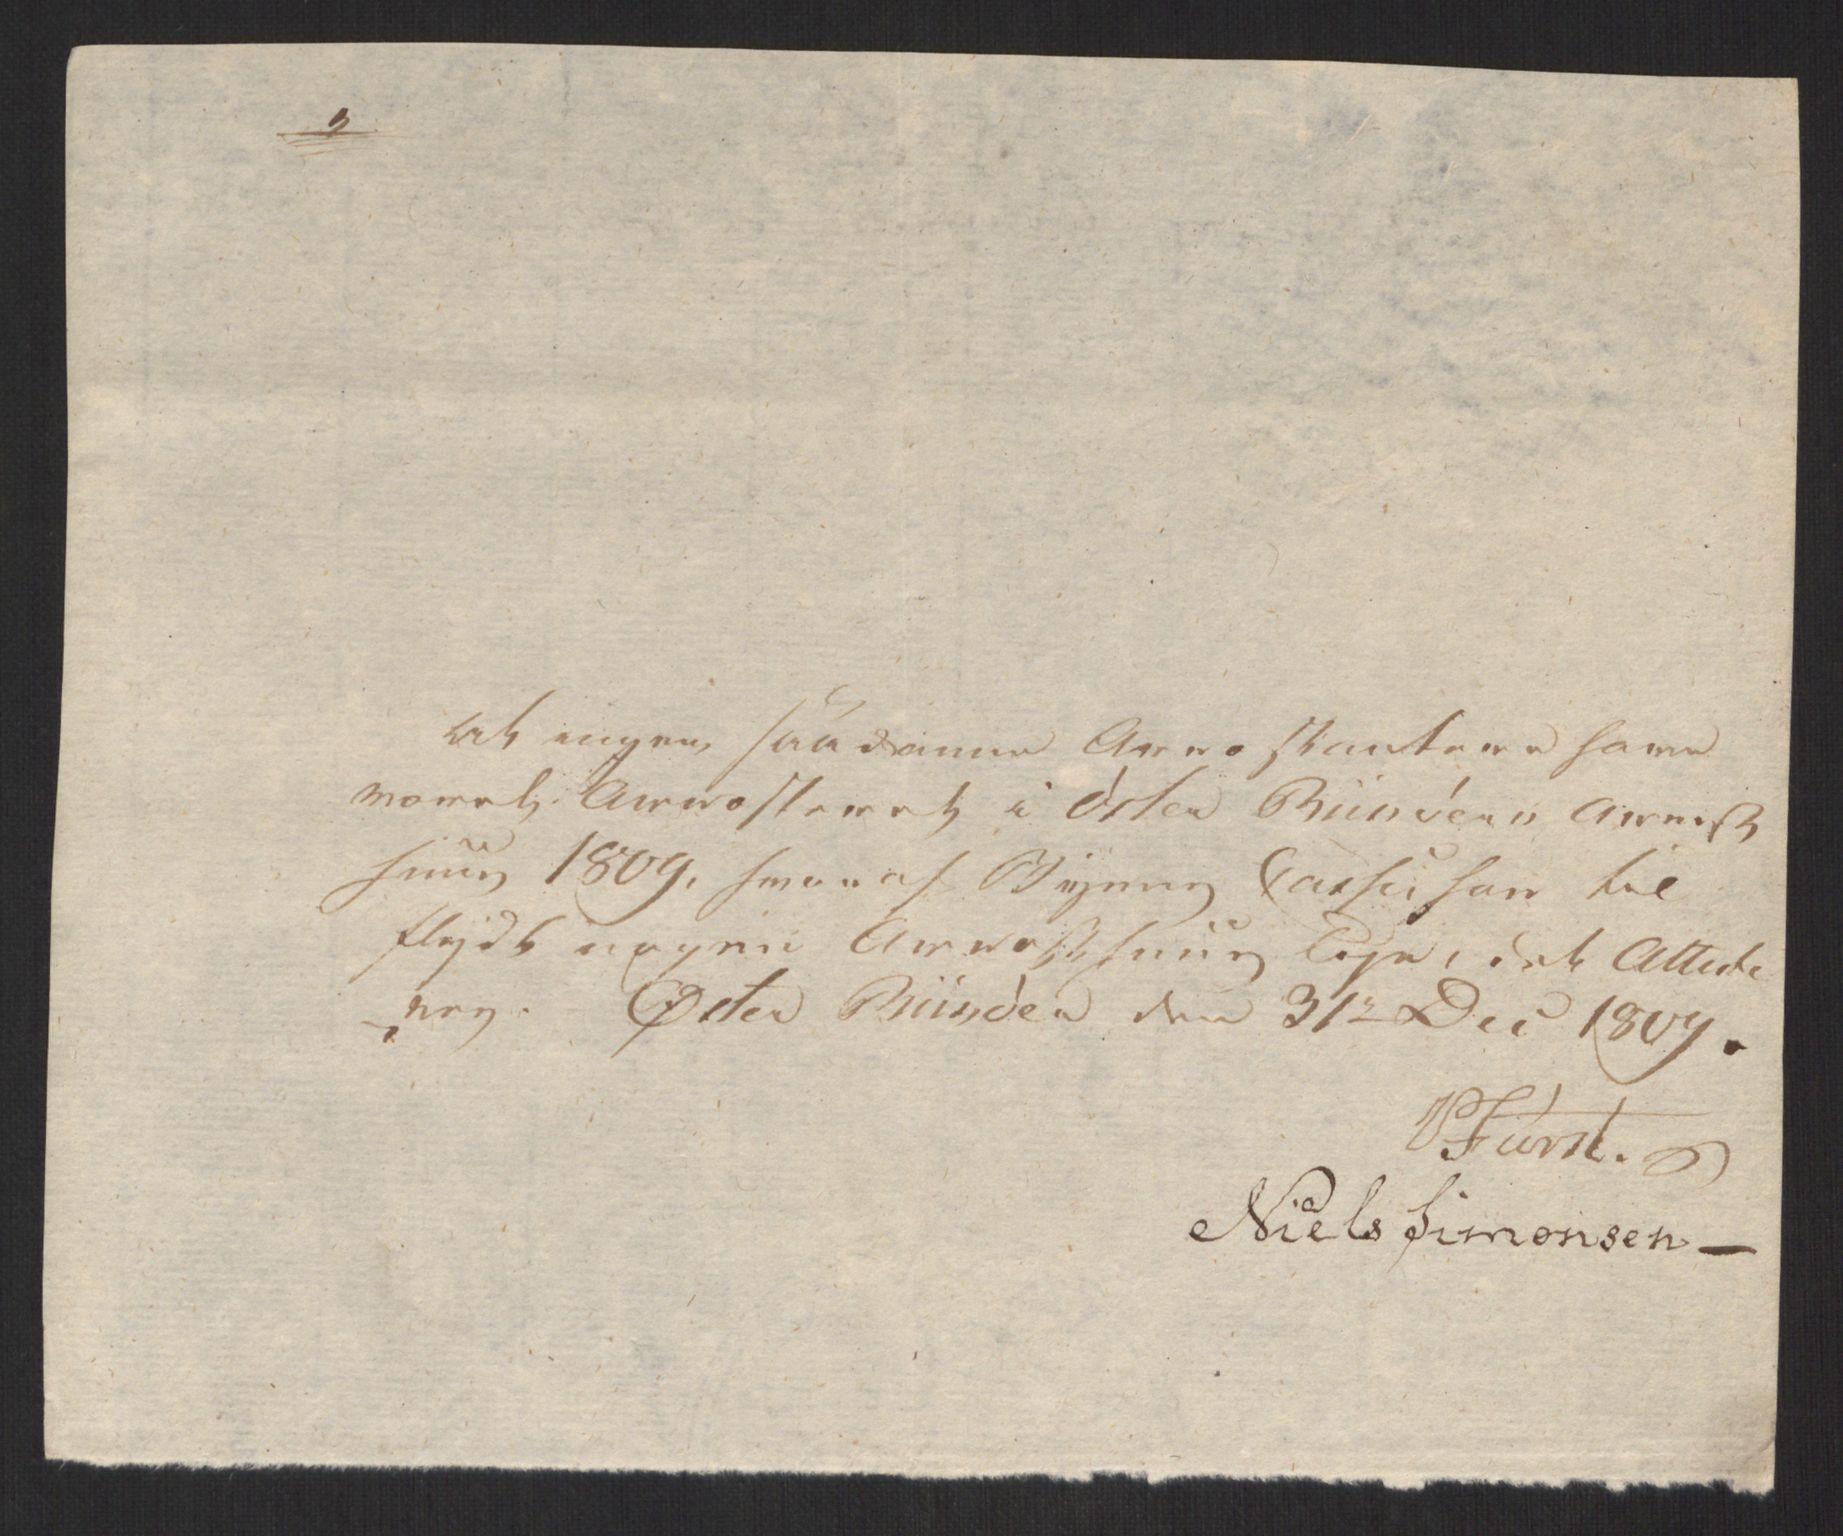 at ingen saadanne Arrestantere have
været Arresteret i Øster Riisöers Arrest
huus 1809, hvoraf Byens Cassa har til
flydt nogen Arresthuus Leje, det Atteste
res. Øster Riisöer den 31te Dec 1809.
Fürst.
Niels Simonsen